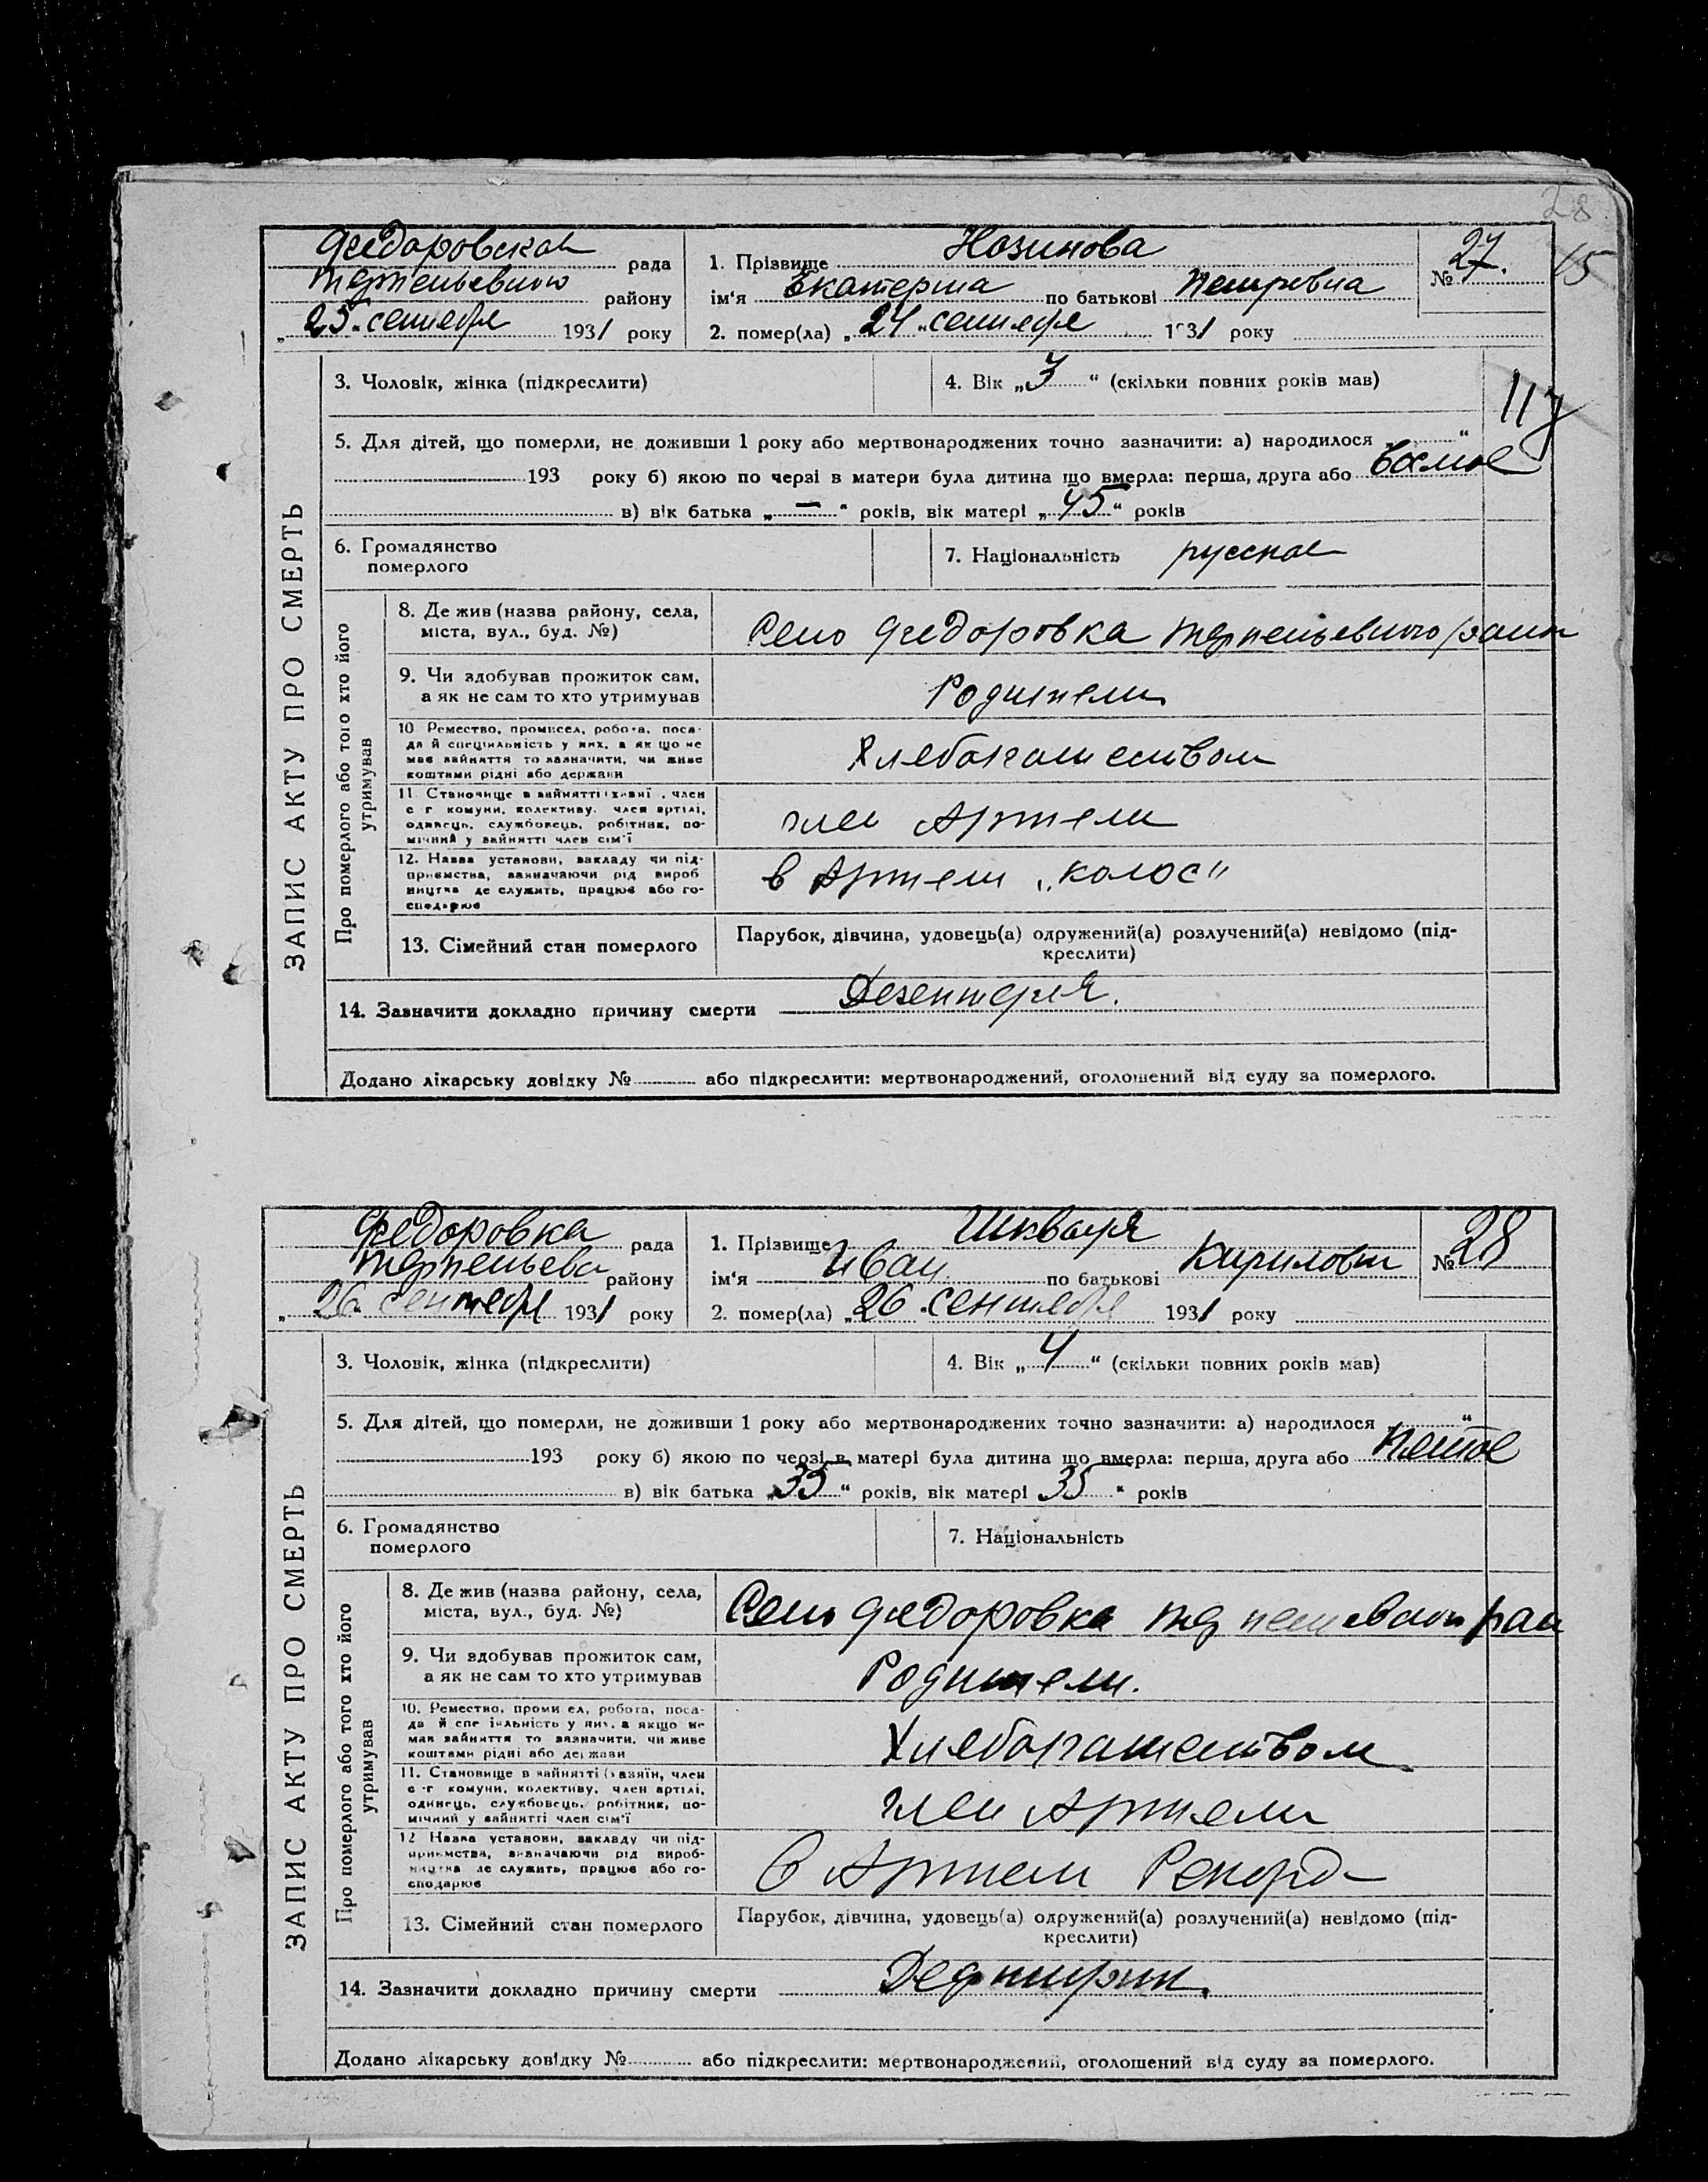 28
Федоровская рада
Терпеньевского району
„25“ сентебря 1931 року
1. Прізвище Нозинова
ім‘я Екатерина по батькові Петровна
2. помер(ла) „24“ сентебря 1931 року
№ 27.
15
ЗАПИС АКТУ ПРО СМЕРТЬ
3. Чоловік, жінка (підкреслити)
4. Вік „3“ (скільки повних років мав)
117
5. Для дітей, що померли, не доживши 1 року або мертвонароджених точно зазначити: а) народилося „ “
193 року б) якою по черзі в матери була дитина що вмерла: перша, друга або восмое
в) вік батька „—“ років, вік матері „45“ років
6. Громадянство
померлого
7. Національність русское
Про померлого або того хто його
утримував
8. Де жив (назва району, села,
міста, вул., буд. №)
Село Федоровка Терпеньевского район
9. Чи здобував прожиток сам,
а як не сам то хто утримував
Родители
10 Ремество, промисел, робота, поса-
да й спеціяльність у них, а як що не
має зайняття то зазначити, чи живе
коштами рідні або держави
Хлебопашеством
11. Становище в зайнятті (хазяї , член
с г. комуни, колективу, член артілі,
одинець, службовець, робітник, по-
мічний у зайнятті член сім‘ї
член Артели
12. Назва установи, закладу чи під-
приємства, зазначаючи рід вироб
ництва де служить, працює або го-
сподарює
в Артели „колос“
13. Сімейний стан померлого
Парубок, дівчина, удовець(а) одружений(а) розлучений(а) невідомо (під-
креслити)
14. Зазначити докладно причину смерти Дезентерия.
Додано лікарську довідку № або підкреслити: мертвонароджений, оголошений від суду за померлого.
Федоровка рада
Терпеньева району
„26“ сентебря 1931 року
1. Прізвище Шкваря
ім‘я Иван по батькові Кирилович
2. помер(ла) „26“ сентебря 1931 року
№ 28
ЗАПИС АКТУ ПРО СМЕРТЬ
3. Чоловік, жінка (підкреслити)
4. Вік „4“ (скільки повних років мав)
5. Для дітей, що померли, не доживши 1 року або мертвонароджених точно зазначити: а) народилося „ “
193 року б) якою по черзі в матері була дитина що вмерла: перша, друга або пятое
в) вік батька „35“ років, вік матері 35“ років
6. Громадянство
померлого
7. Національність
Про померлого або того хто його
утримував
8. Де жив (назва району, села,
міста, вул., буд. №)
Село Федоровка
9. Чи здобував прожиток сам,
а як не сам то хто утримував
Родители.
10. Ремество, проми ел, робота, поса-
да й спе іяльність у них, а якщо не
мав зайняття то зазначити, чи живе
коштами рідні або держави
Хлебопашеством
11. Становище в зайнятті (хазяїн, член
с -г комуни, колективу, член артілі,
одинець, службовець, робітник, по-
мічний у зайнятті член сім‘ї
член Артели
12 Назва установи, закладу чи під-
приємства, зазначаючи рід вироб-
ництва де служить, працює або го-
сподарює
в Артели Рекорд
13. Сімейний стан померлого
Парубок, дівчина, удовець(а) одружений(а) розлучений(а) невідомо (під-
креслити)
14. Зазначити докладно причину смерти
Додано лікарську довідку № або підкреслити: мертвонароджений, оголошений від суду за померлого.